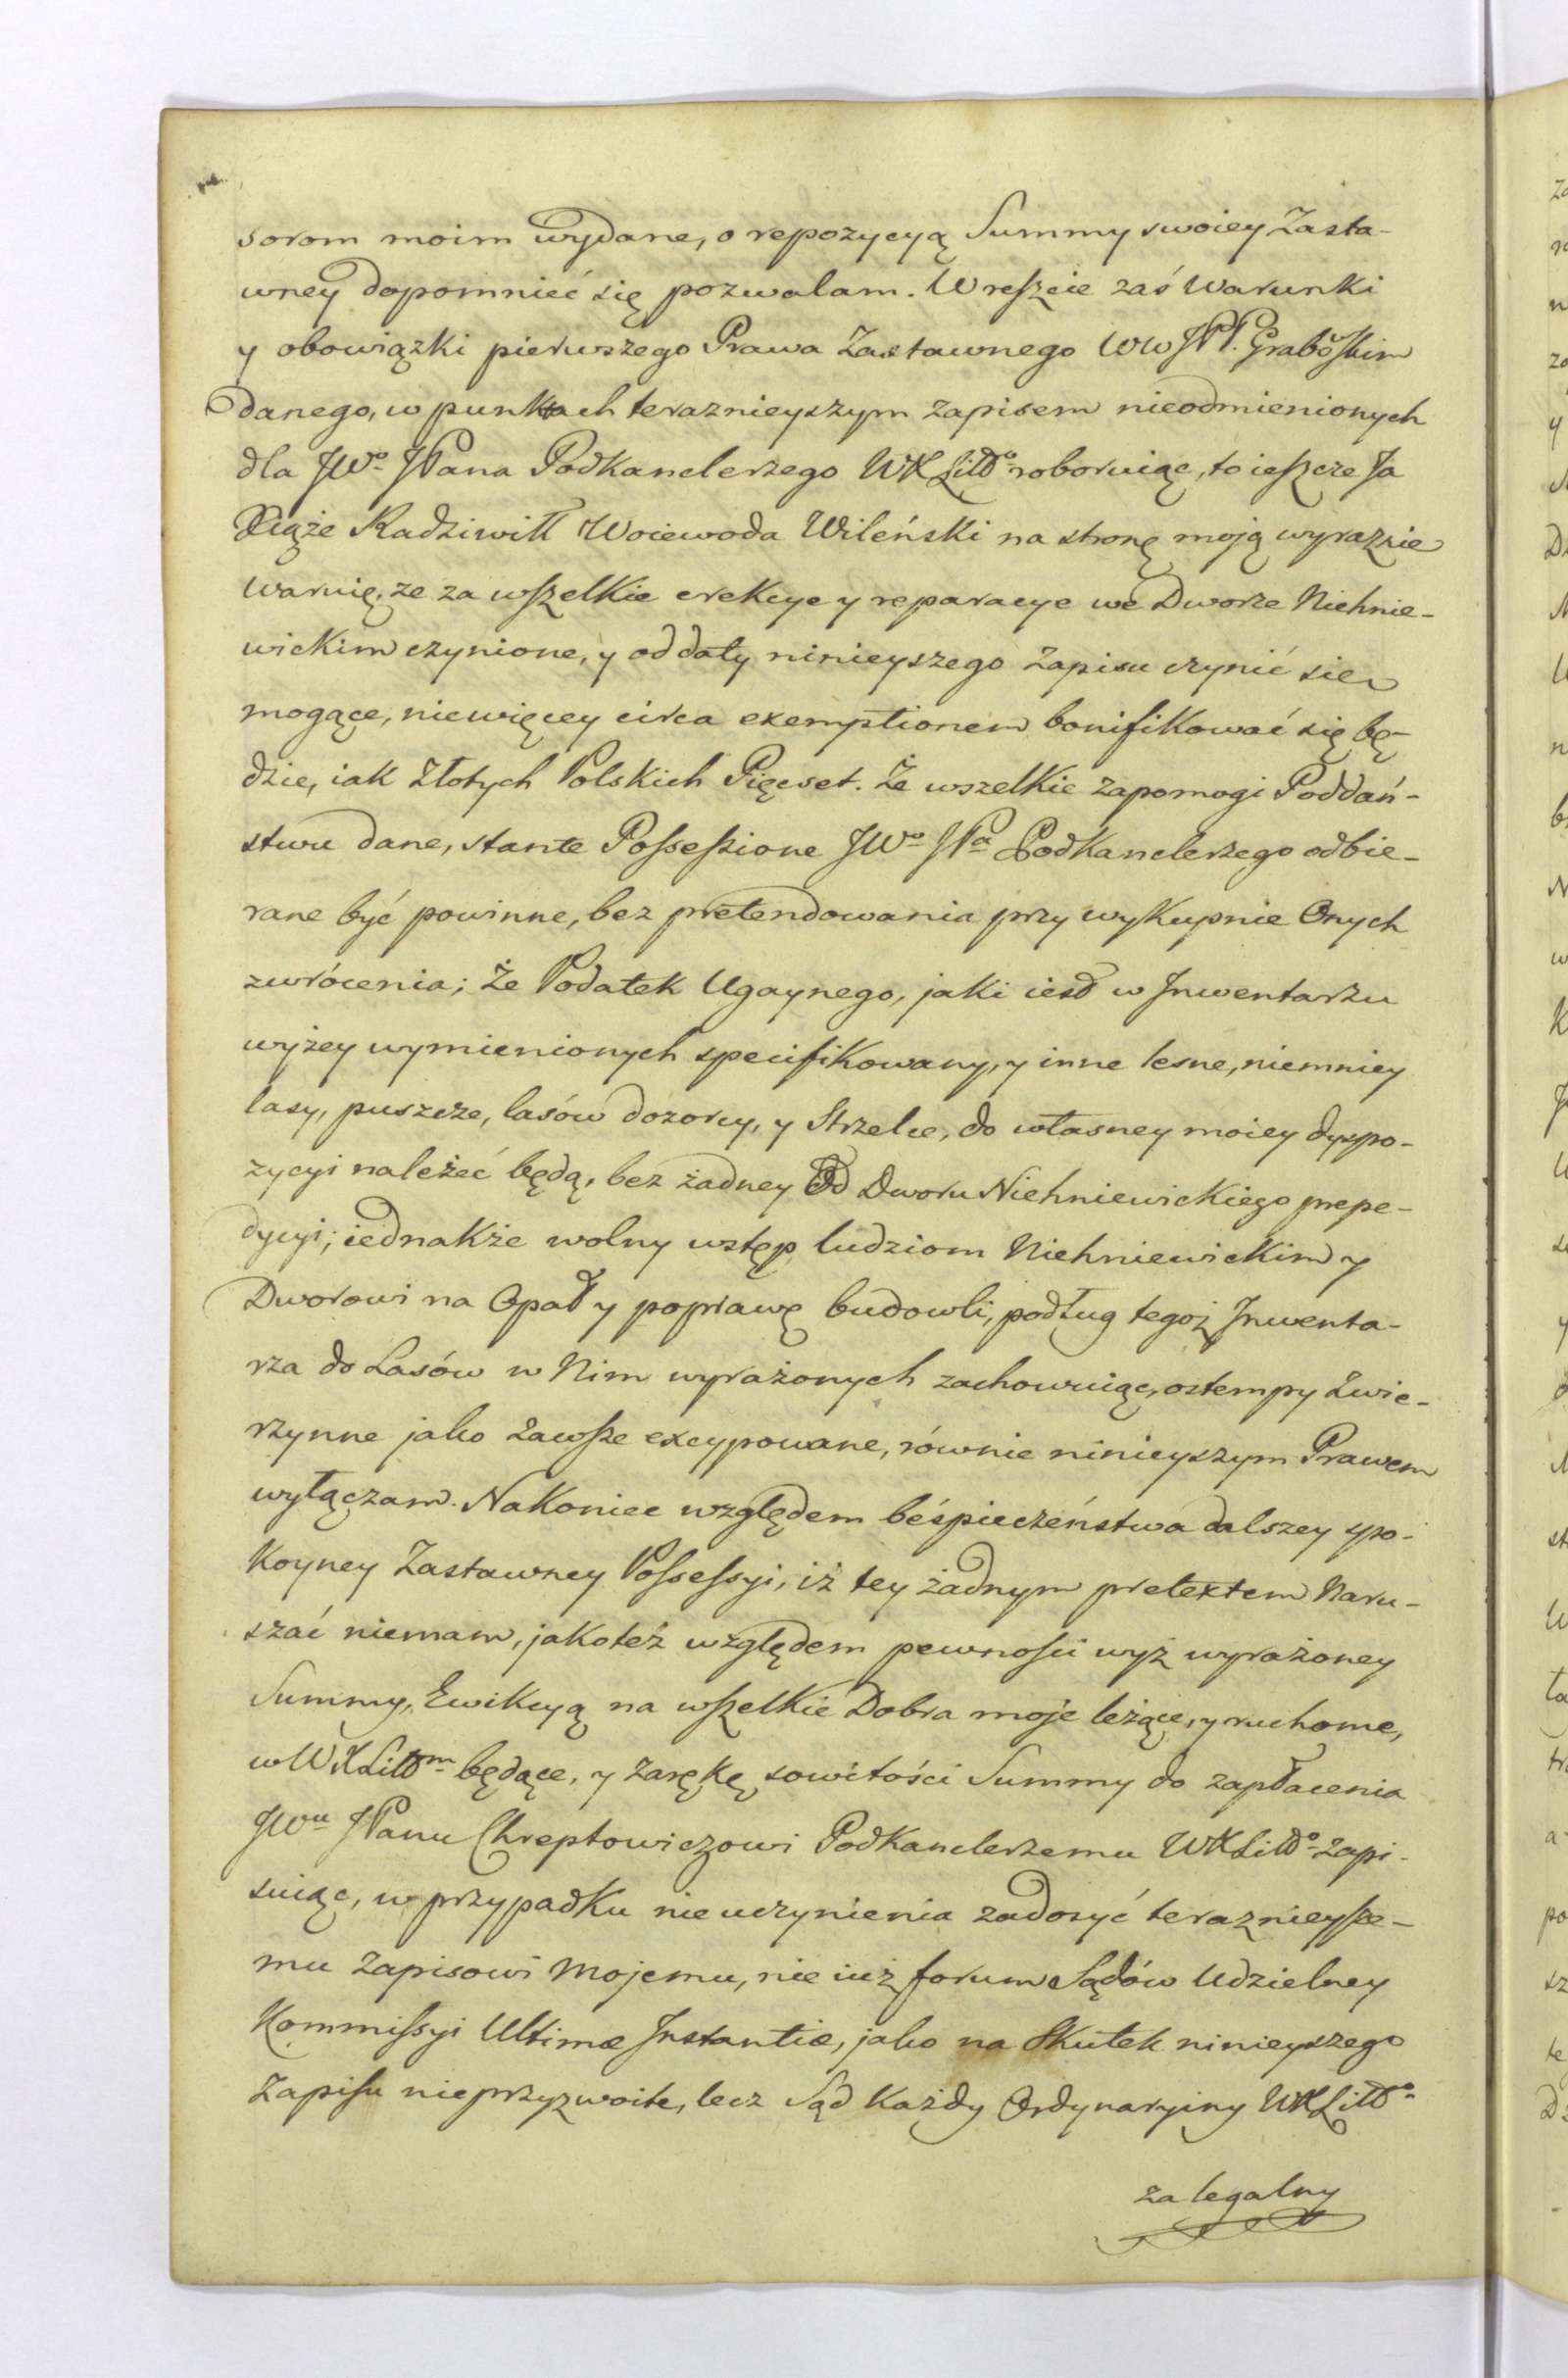 sorom moim wydane, o repozycyą Summy swoiey Zasta-
wney dopomnieć się pozwalam. Wreszcie zaś Warunki
y obowiązki pierwszego Prawa Zastawnego WW JPP. Grabowskim
danego, w punktach teraznieyszym zapisem nieodmienionych
dla JWo JPana Podkanclerzego WXLittgo roboruiąc, to ieszcze Ja
Xiąże Radziwiłł Woiewoda Wileński na stronę moją wyraznie
waruię, że za wszelkie erekcye y reparacye we Dworze Niehnie-
wickim czynione, y od daty ninieyszego zapisu czynić sie
mogące, niewięcey circa exemptionem bonifikować się bę-
dzie, iak złotych Polskich Pięcset. Że wszelkie zapomogi Poddań-
stwu dane, stante Possessione JWo JPa Podkanclerzego odbie-
rane być powinne, bez pretendowania przy wykupnie Onych
zwrócenia; Że Podatek Ugaynego, jaki iest w Inwentarzu
wyżey wymienionych specifikowany, y inne lesne, niemniey
lasy, puszcze, lasów dozorcy, y Strzelce, do własney moiey dyspo-
zycyi należeć będą, bez żadney Od Dworu Niehniewickiego prepe-
dycyi; iednakże wolny wstęp ludziom Niehniewickim y
Dworowi na Opał y poprawę budowli, podług tegoż Inwenta-
rza do Lasów w Nim wyrażonych zachowuiąc, ostempy Zwie-
rzynne jako zawsze excypowane, równie ninieyszym Prawem
wyłączam. Nakoniec względem beśpieczeństwa dalszey spo-
koyney Zastawney Possessyi, iż tey żadnym pretextem Naru-
szać niemam, jakoteż względem pewności wyż wyrażoney
Summy, Ewikcyą na wszelkie Dobra moje leżące, y ruchome,
w WXLittm będące, y zarękę sowitości Summy do zapłacenia
JWu JPanu Chreptowiczowi Podkanclerzemu WXLittgo zapi-
suiąc, w przypadku nie uczynienia zadosyć teraznieysze-
mu zapisowi Mojemu, nie iuż forum Sądów Udzielney
Kommissyi Ultimæ Instantiæ, jako na Skutek ninieyszego
Zapisu nieprzyzwoite, lecz Sąd każdy Ordynaryiny WXLittgo
za legalny